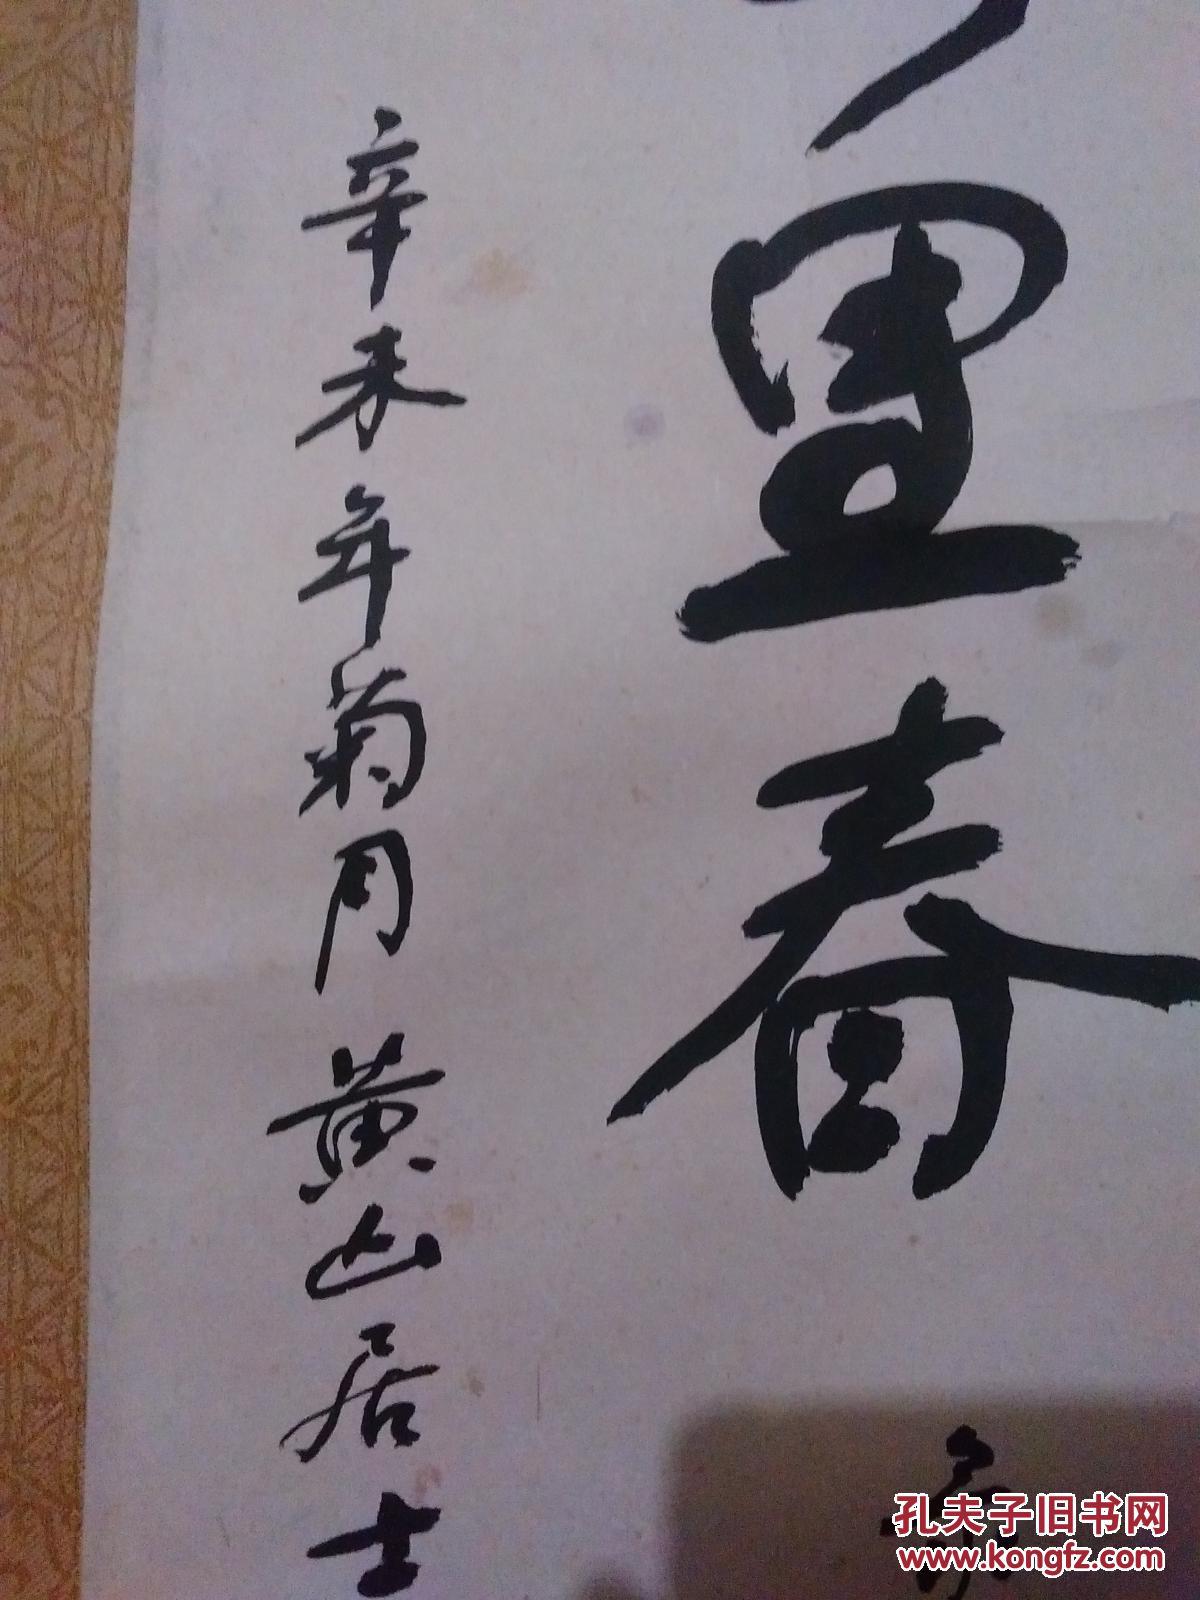 里春
辛未年菊月黄山居士
孔夫子旧书网
www.kongfz.com